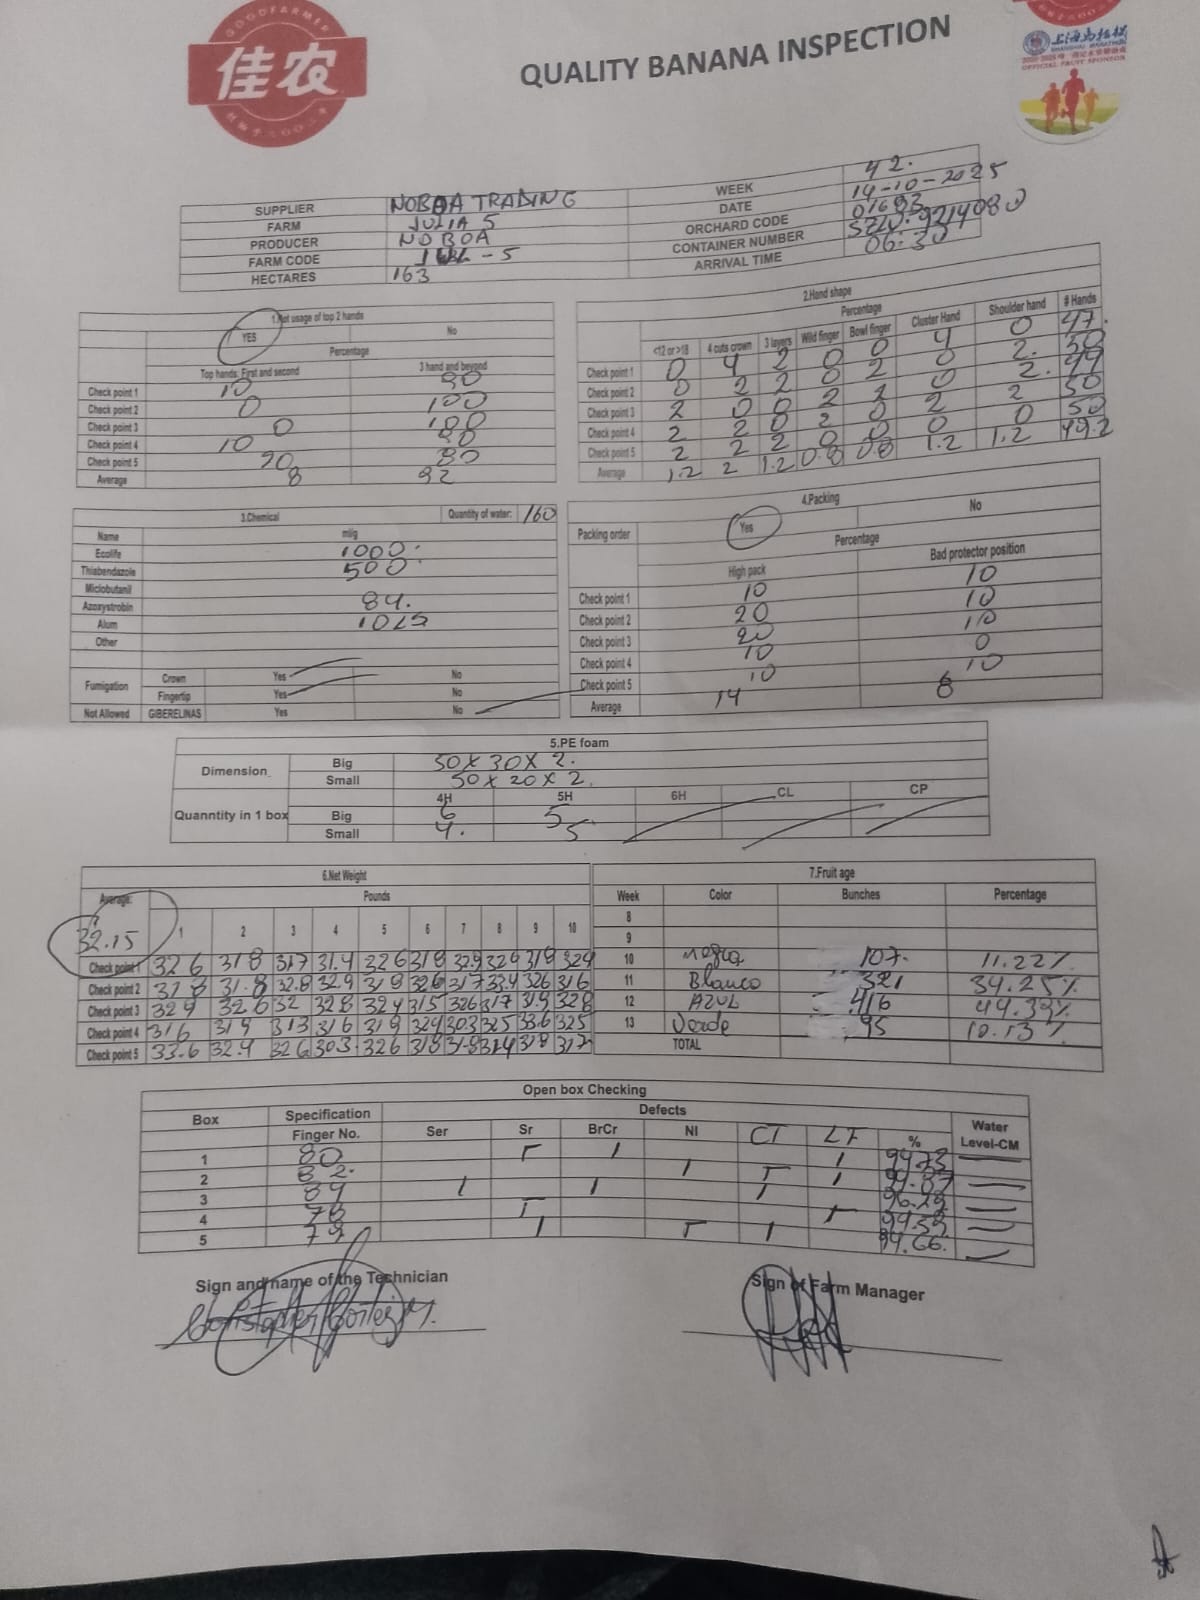 GOODFARMER
佳农
QUALITY BANANA INSPECTION
上海马拉松
SHANGHAI MARATHON
OFFICIAL FRUIT SPONSOR
SUPPLIER NOBOA TRADING WEEK 42.
FARM JULIA 5 DATE 14-10-2025
PRODUCER NOBOA ORCHARD CODE 01683
FARM CODE CONTAINER NUMBER
HECTARES 163 ARRIVAL TIME 06:30
1.Not usage of top 2 hands
YES No
Percentage
Top hands: First and second 3 hand and beyond
Check point 1 10 90
Check point 2 0 100
Check point 3 0 100
Check point 4 10 90
Check point 5 20 80
Average 8 92
2.Hand shape
Percentage
<12 or >18 4 cuts crown 3 layers Wild finger Bowl finger Cluster Hand Shoulder hand # Hands
Check point 1 0 4 2 0 0 4 0 47.
Check point 2 0 2 2 0 2 0 2. 50
Check point 3 2 0 0 2 2 0 2. 49
Check point 4 2 2 0 2 0 2 2 50
Check point 5 2 2 2 0 0 0 0 50
Average 1.2 2 1.2 0.8 0.8 1.2 1.2 49.2
3.Chemical Quantity of water: 160
Name ml/g
Ecolife 1000.
Thiabendazole 500.
Miclobutanil
Azoxystrobin 84.
Alum
Other
Fumigation Crown Yes No
Fingertip Yes No
Not Allowed GIBERELINAS Yes No
4.Packing
Packing order Yes No
Percentage
High pack Bad protector position
Check point 1 10 10
Check point 2 20 10
Check point 3 20 10
Check point 4 10 0
Check point 5 10 10
Average 14 8
5.PE foam
Dimension Big 50 x 30 x 2.
Small 50 x 20 x 2.
4H 5H 6H CL CP
Quanntity in 1 box Big 6 5
Small 4. 5
6.Net Weight
Average: Pounds
32.15
1 2 3 4 5 6 7 8 9 10
Check point 1 326 318 317 31.4 326 318 32.9 329 318 329
Check point 2 318 31.8 32.8 329 318 326 317 33.4 326 316
Check point 3 329 32.6 32 328 324 315 326 317 31.9 328
Check point 4 316 319 313 316 319 324 303 325 33.6 325
Check point 5 33.6 32.9 326 303 326 318 31.8 314 318 317
7.Fruit age
Week Color Bunches Percentage
8
9
10 negra 107. 11.22%
11 Blanco 321 34.25%
12 AZUL 416 44.39%
13 Verde 95 10.13%
TOTAL
Open box Checking
Box Specification Defects Water
Finger No. Ser Sr BrCr NI CT LF % Level-CM
1 80
2 82.
3 89
4 78
5 79 94.66.
Sign and name of the Technician
Sign of Farm Manager